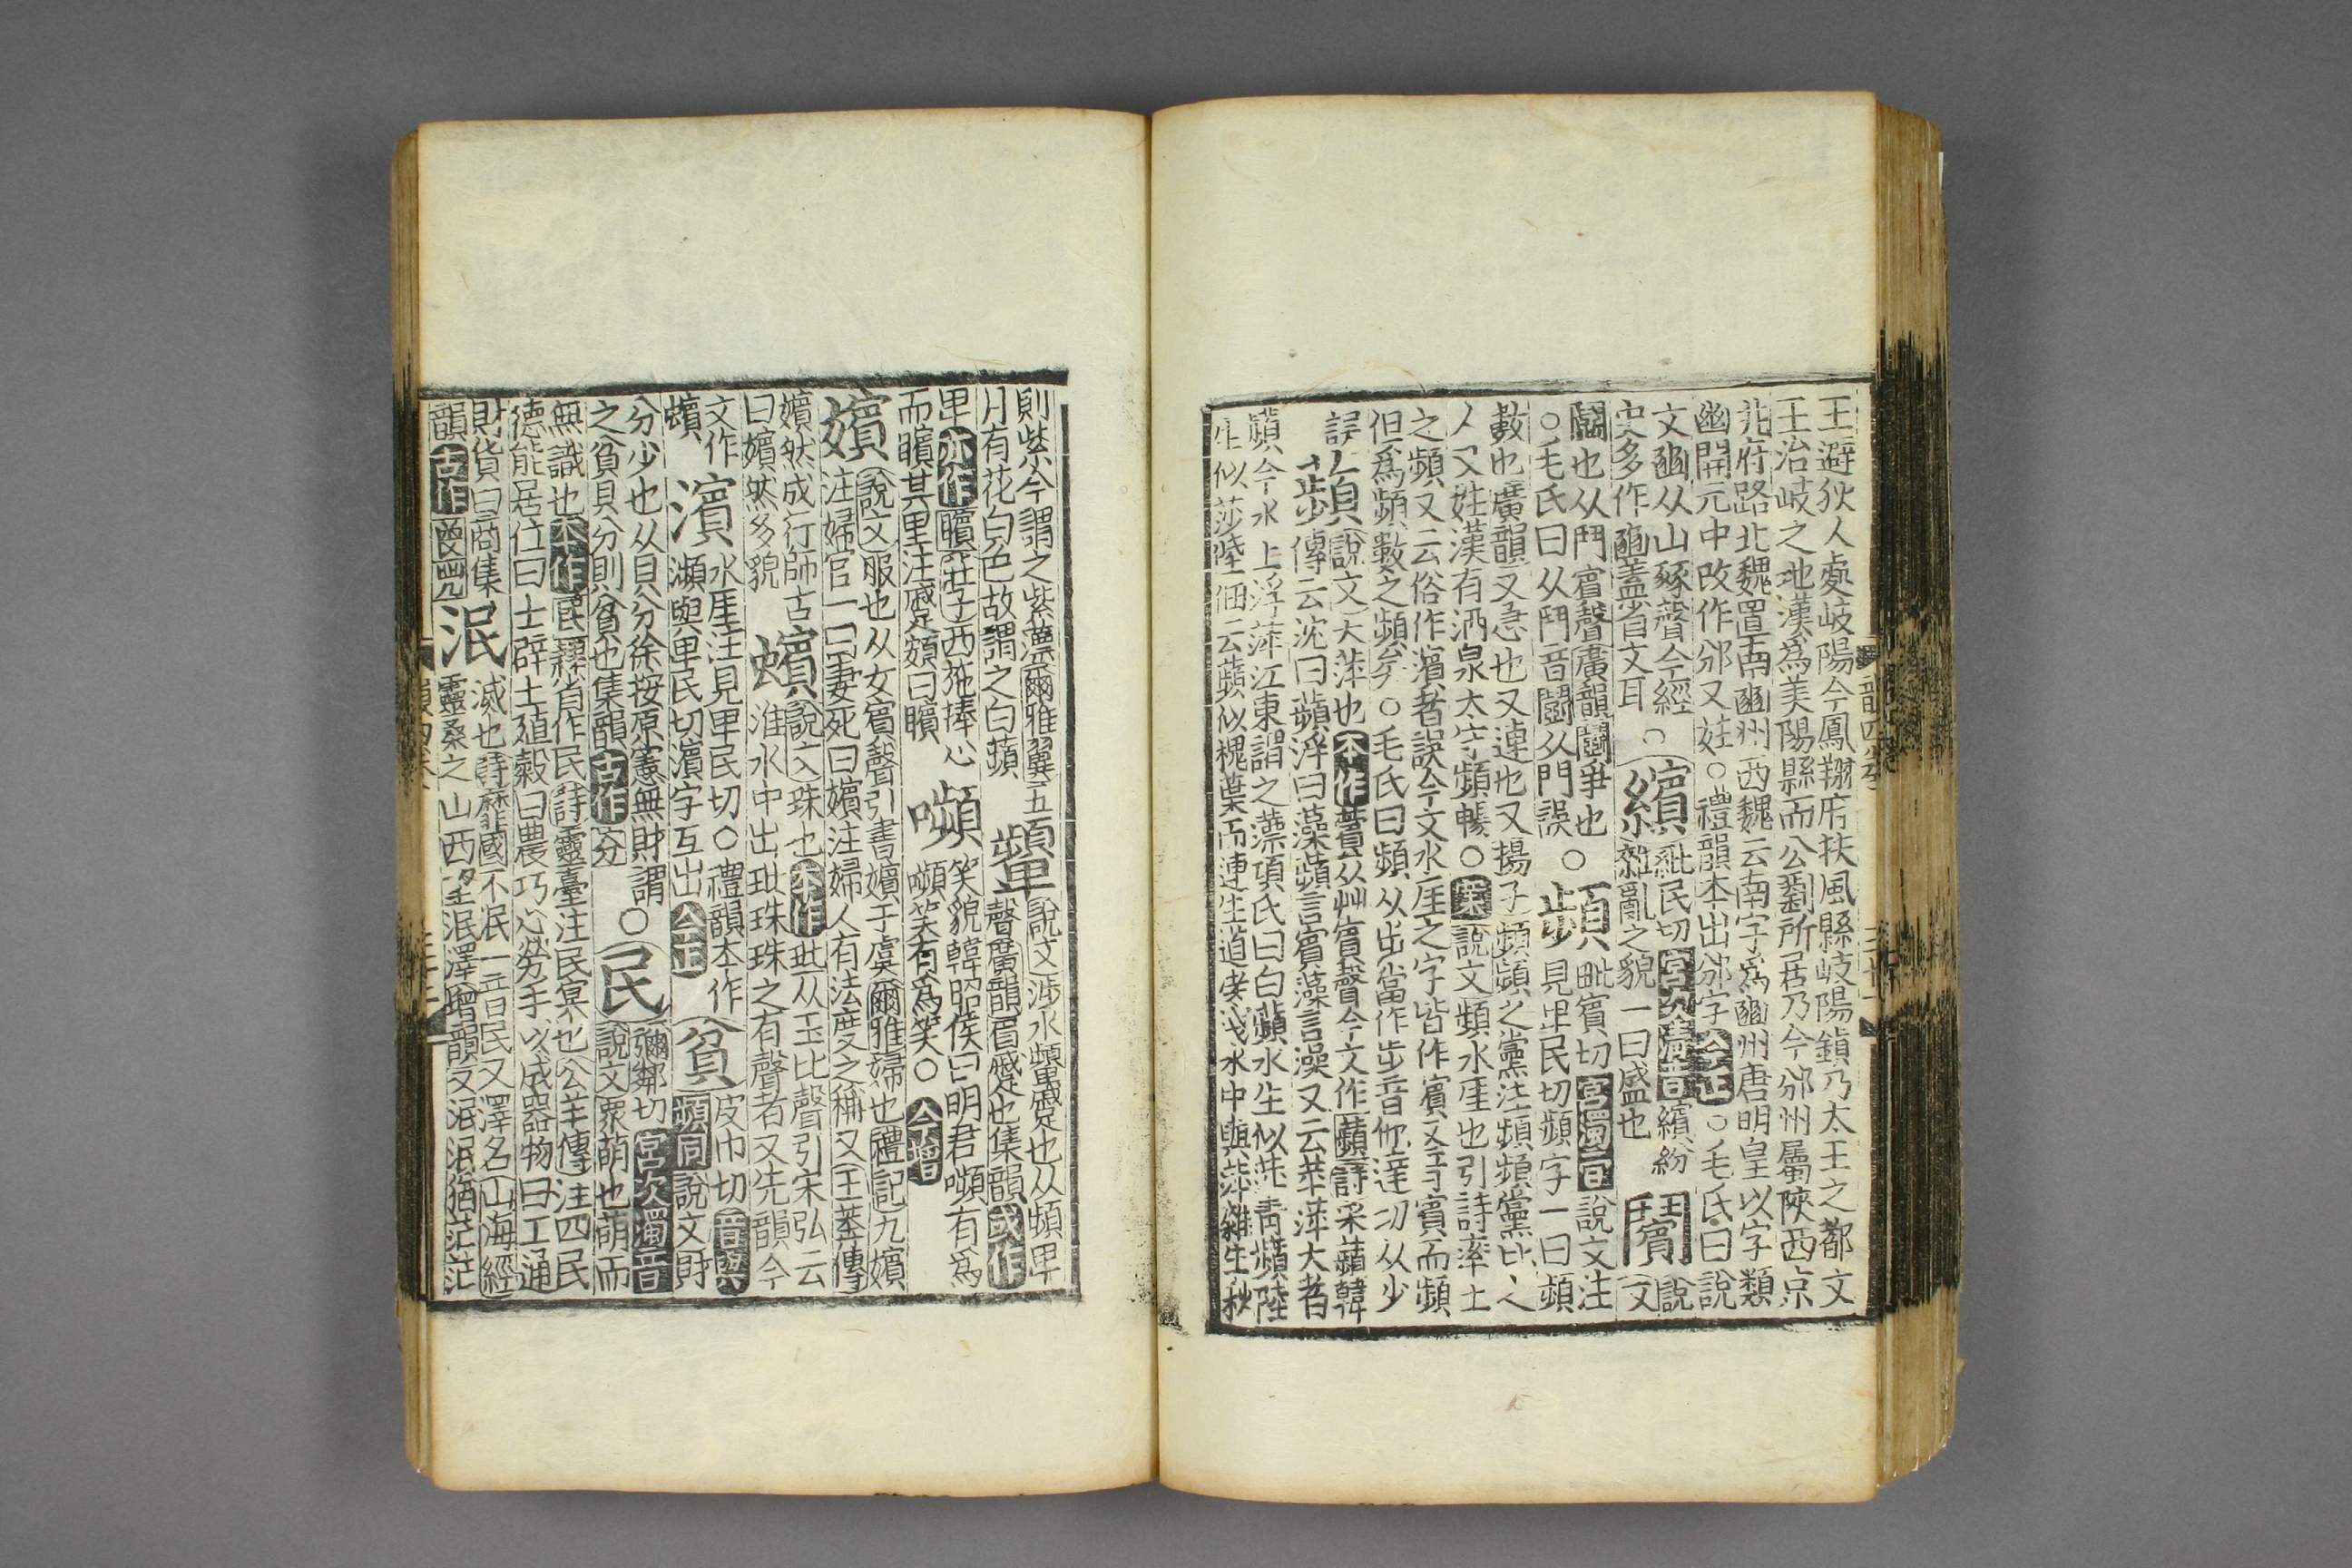 王避狄人處岐陽今鳳翔府扶風縣岐陽鎮乃太王之都文
王治岐之地漢爲美陽縣而公劉所居乃今邠州屬陝西京
兆府路北魏置南豳州西魏云南字爲豳州唐明皇以字類
幽開元中改作邠又姓○禮韻本出邠字今正○毛氏曰說
文豳从山豩聲今經
史多作豳蓋省文耳○
繽
紕民切宮次清音繽紛
雜亂之貌一曰盛也
䦻
說文
鬭也从鬥賓聲廣韻鬭爭也○
○毛氏曰从鬥音鬭从門誤
頻
毗賓切宮濁音說文注
見卑民切頻字一曰頻
數也廣韻又急也又連也又揚子頻頻之黨注頻頻黨比
人又姓漢有酒泉太守頻暢○案說文頻水厓也引詩率土
之頻又云俗作濱者誤今文水厓之字皆作賓文賓而頻
但爲頻數之頻矣○毛氏曰頻从步當作步音他達切从少
誤
蘋
說文大萍也本作薲从艸賓聲今文作蘋詩采蘋韓
傳云沈曰蘋浮曰藻蘋言賓藻言澡又云苹萍大者
蘋今水上浮萍江東謂之薸項氏曰白蘋水生似萍靑蘋陸
生似莎陸佃云蘋似槐葉而連生道旁淺水中與萍雜生秋
則紫今謂之紫薸爾雅翼五
月有花白色故謂之白蘋
顰
說文涉水顰蹙也从頻卑
聲廣韻眉蹙也集韻或作
卑亦作矉莊子西施捧心
而矉其里注蹙頞曰矉
嚬
笑貌韓昭侯曰明君嚬有爲
嚬笑有爲笑○今增
嬪
說文服也从女賓聲引書嬪于虞爾雅婦也禮記九嬪
注婦官一曰妻死曰嬪注婦人有法度之稱又王莽傳
嬪然成行師古
曰嬪然多貌
蠙
說文珠也本作玭从玉比聲引宋弘云
淮水中出玭珠珠之有聲者又先韻今
文作
蠙
濱
水厓注見卑民切○禮韻本作
瀕與卑民切濱字互出今正
貧
皮巾切音與
頻同說文財
分少也从貝分徐按原憲無財謂
之貧貝分則貧也集韻古作㝃○
民
彌鄰切宮次濁音
說文眾萌也萌而
無識也本作𡰱䋣省作民詩靈臺注民冥也公羊傳注四民
德能居位曰士辟土殖穀曰農巧心勞手以成器物曰工通
財貨曰商集
韻古作𡰱𡴆
泯
滅也詩靡國不泯一曰民又澤名山海經
靈桑之山西望泯澤增韻又泯泯猶茫茫